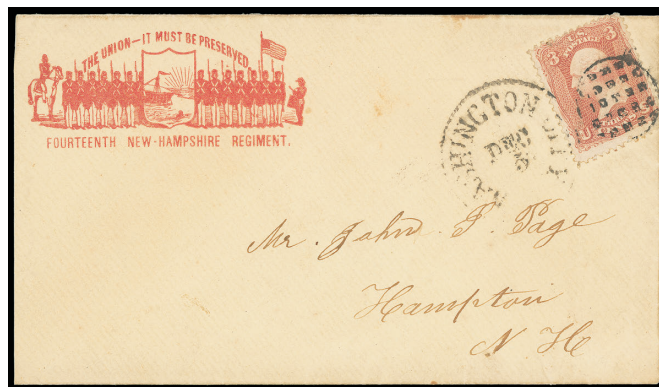 THE UNION—IT MUST BE PRESERVED
FOURTEENTH NEW-HAMPSHIRE REGIMENT.
WASHINGTON CITY
DEC
3
3
U.S.
POSTAGE
Mr. John T. Page
Hampton
N H